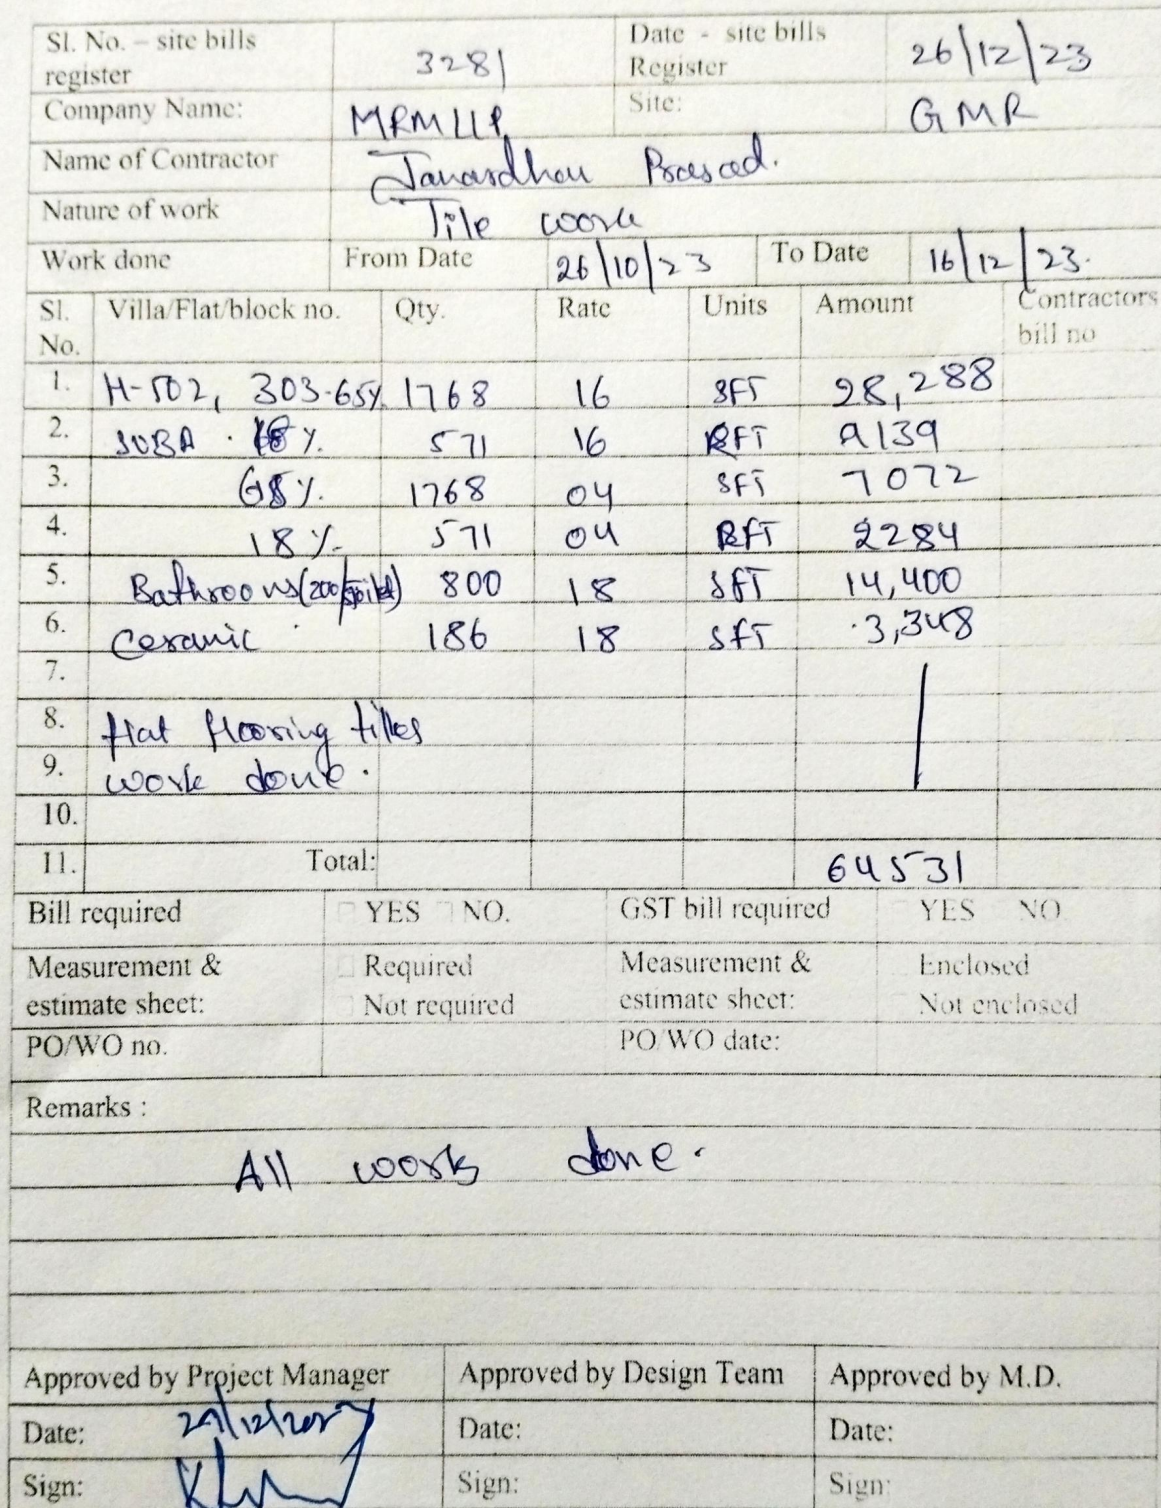 Sl. No. – site bills register 3281 Date - site bills Register 26/12/23
Company Name: MRMLLP Site: GMR
Name of Contractor Janardhan Prasad.
Nature of work Tile work
Work done From Date 26/10/23 To Date 16/12/23.
Sl. No. Villa/Flat/block no. Qty. Rate Units Amount Contractors bill no
1. H-502, 303-65% 1768 16 SFT 28,288
2. 18%. 571 16 RFT 9139
3. 65%. 1768 04 SFT 7072
4. 18% 571 04 RFT 2284
5. Bathrooms(200/ 800 18 SFT 14,400
6. Ceramic 186 18 SFT 3,348
7.
8. flat flooring tilles
9. work done.
10.
11. Total: 64531
Bill required YES NO. GST bill required YES NO
Measurement & estimate sheet: Required Not required Measurement & estimate sheet: Enclosed Not enclosed
PO/WO no. PO/WO date:
Remarks :
All work done.
Approved by Project Manager Approved by Design Team Approved by M.D.
Date: Date: Date:
Sign: Sign: Sign: